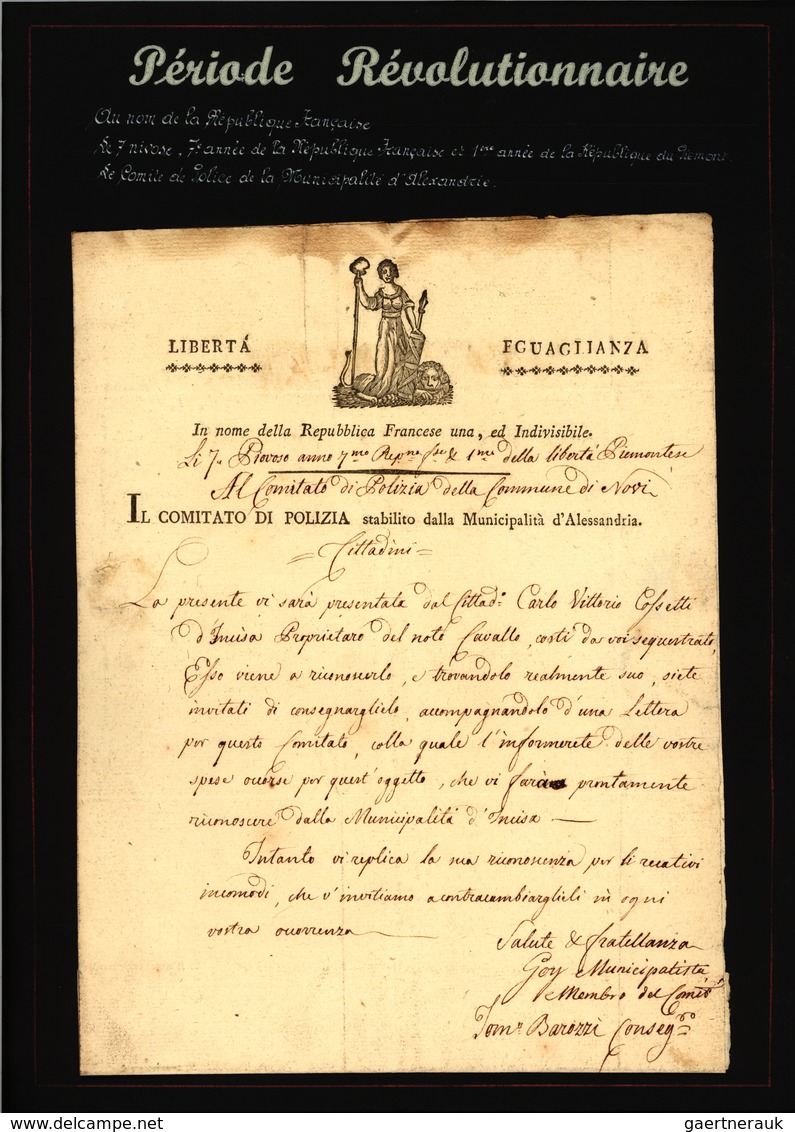 Période Révolutionnaire
Au nom de la République Française
Le 7 nivose, 7e année de la République Française et 1ère année de la République du Piemont.
Le Comite de Police de la Municipalité d'Alexandrie.
LIBERTÁ
EGUAGLIANZA
In nome della Repubblica Francese una, ed Indivisibile.
Li 7. Piovoso anno 7mo Repna fse & 1mo della libertà Piemontese
Al Comitato di Polizia della Commune di Novi
IL COMITATO DI POLIZIA stabilito dalla Municipalità d'Alessandria.
= Cittadini =
La presente vi sarà presentata dal Cittado Carlo Vittorio Cossetti
d'Incisa Proprietaro del noto Cavallo, costì da voi sequestrato,
Esso viene a riconoscerlo, e trovandolo realmente suo, siete
invitati di consegnarglielo, accompagnandolo d'una Lettera
per questo Comitato, colla quale l'informerete delle vostre
spese occorse per quest'oggetto, che vi farà prontamente
riconoscere dalla Municipalità d'Incisa —
Intanto vi replica la sua riconoscenza per li recativi
incomodi, che v'invitiamo a contracambiarglieli in ogni
vostra occorrenza —
Salute & fratellanza
Goy Municipalista
Membro del Comio
Tomo Barozzi Consegro
delcampe.net
gaertnerauk